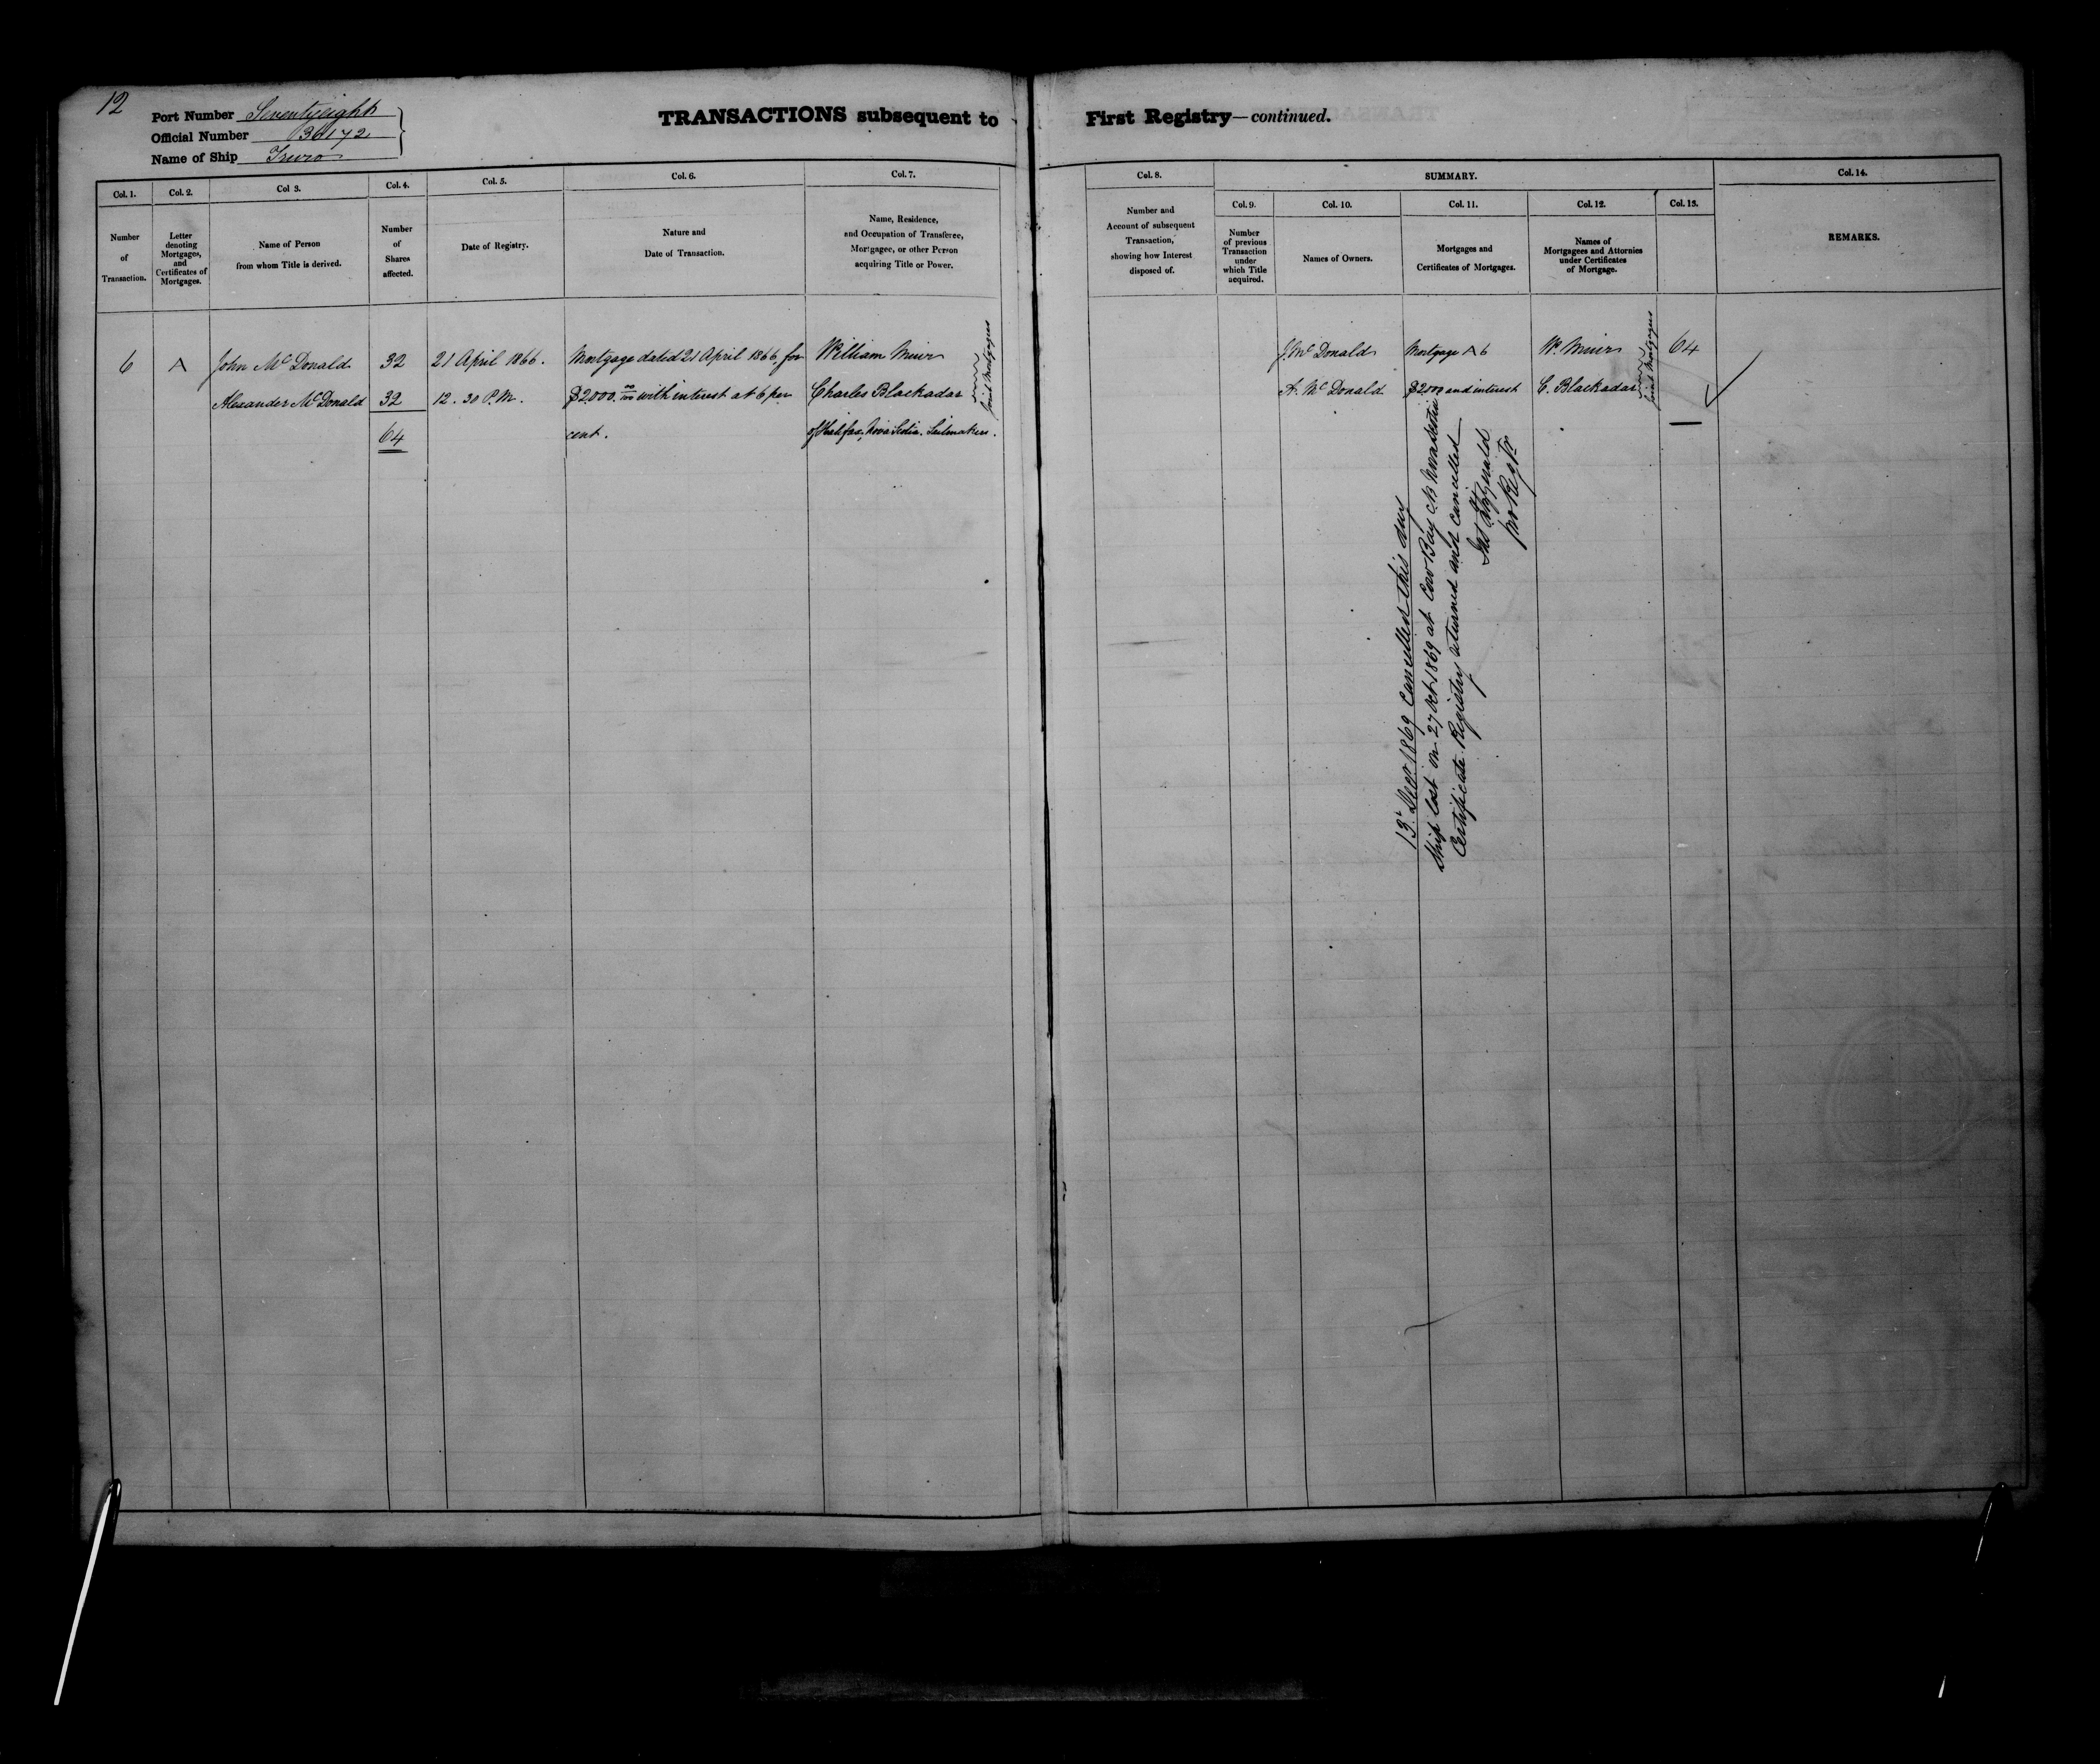 12
Port Number Seventyeight
Official Number 36172
Name of Ship Truro
TRANSACTIONS subsequent to First Registry—continued.
Col. 1.
Number
of
Transaction.
Col. 2.
Letter
denoting
Mortgages,
and
Certificates of
Mortgages.
Col 3.
Name of Person
from whom Title is derived.
Col. 4.
Number
of
Shares
affected.
Col. 5.
Date of Registry.
Col. 6.
Nature and
Date of Transaction.
Col. 7.
Name, Residence,
and Occupation of Transferee,
Mortgagee, or other Person
acquiring Title or Power.
Col. 8.
Number and
Account of subsequent
Transaction,
showing how Interest
disposed of.
SUMMARY.
Col. 9.
Number
of previous
Transaction
under
which Title
acquired.
Col. 10.
Names of Owners.
Col. 11.
Mortgages and
Certificates of Mortgages.
Col. 12.
Names of
Mortgagees and Attornies
under Certificates
of Mortgage.
Col. 13.
Col. 14.
REMARKS.
6 A John McDonald 32 21 April 1866. Mortgage dated 21 April 1866, for William Muir
Alexander McDonald 32 12.30 P.M. $2000.00/100 with interest at 6 per Charles Blackadar
64 cent. of Halifax, Nova Scotia. Sailmakers.
Joint Mortgagees
J. McDonald Mortgage A 6 W. Muir 64
A. McDonald $2000 and interest C. Blackadar
Joint Mortgagees
13 Decr 1869 Cancelled this day
Ship lost on 27 Oct 1869 at Cow Bay C.B. Nova Scotia
Certificate Registry returned and cancelled
Fitzgerald
pro Regtr